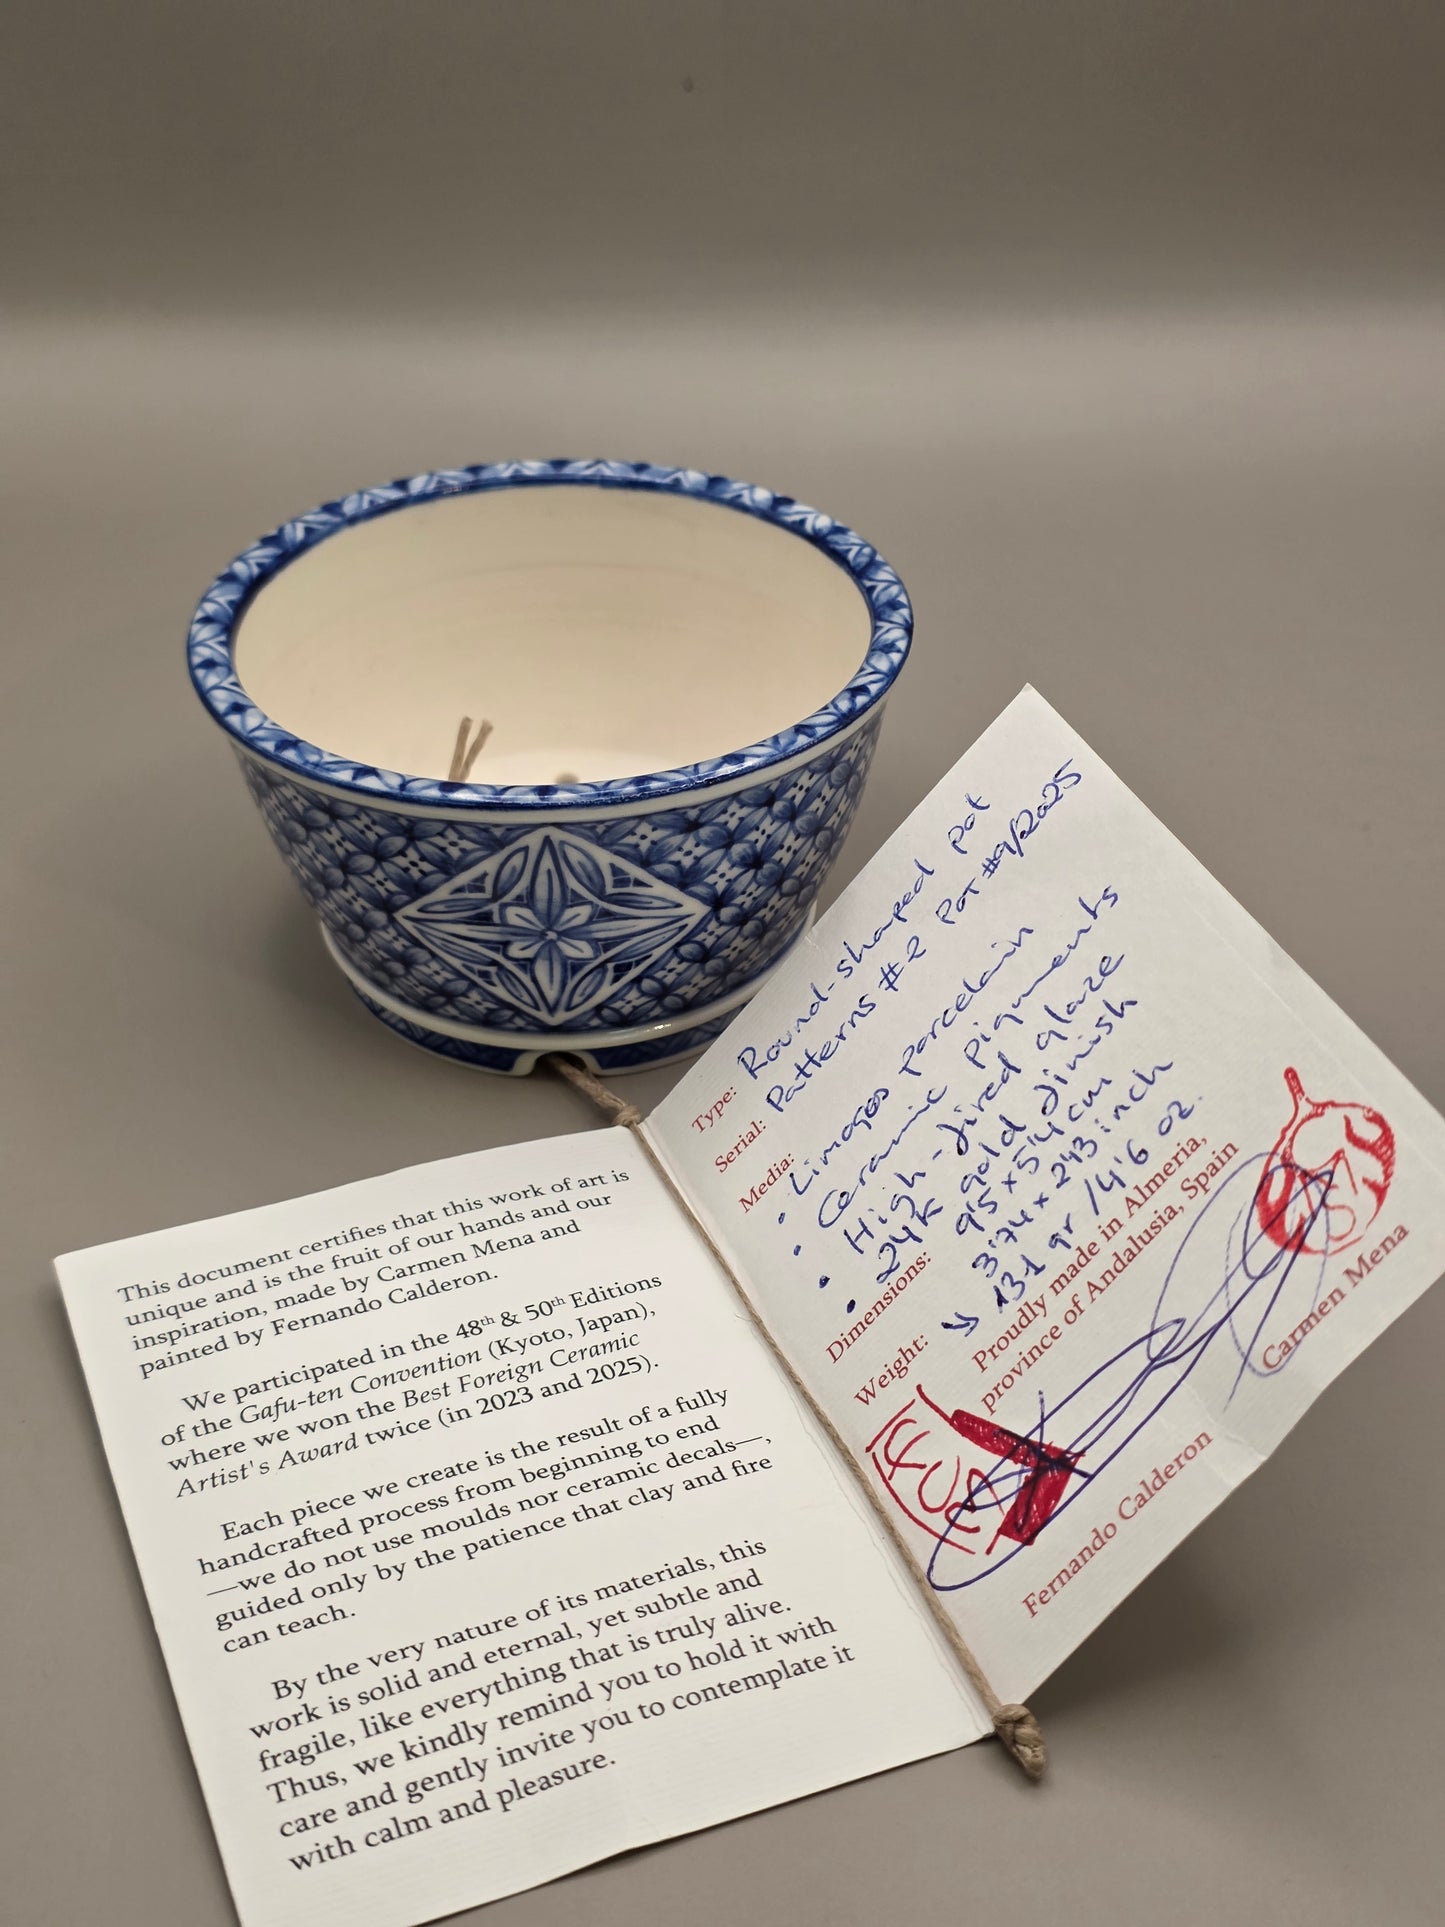 This document certifies that this work of art is
unique and is the fruit of our hands and our
inspiration, made by Carmen Mena and
painted by Fernando Calderon.
We participated in the 48th & 50th Editions
of the Gafu-ten Convention (Kyoto, Japan),
where we won the Best Foreign Ceramic
Artist's Award twice (in 2023 and 2025).
Each piece we create is the result of a fully
handcrafted process from beginning to end
—we do not use moulds nor ceramic decals—,
guided only by the patience that clay and fire
can teach.
By the very nature of its materials, this
work is solid and eternal, yet subtle and
fragile, like everything that is truly alive.
Thus, we kindly remind you to hold it with
care and gently invite you to contemplate it
with calm and pleasure.
Type: Round-shaped pot
Serial: Patterns #2 Pot #9/2025
Media:
• Limoges porcelain
• Ceramic pigments
• High-fired glaze
• 24K gold finish
Dimensions: 9'5 x 5'4 cm
3'74 x 2'13 inch
Weight: 131 gr / 4'6 oz.
Proudly made in Almeria,
province of Andalusia, Spain
Carmen Mena
Fernando Calderon